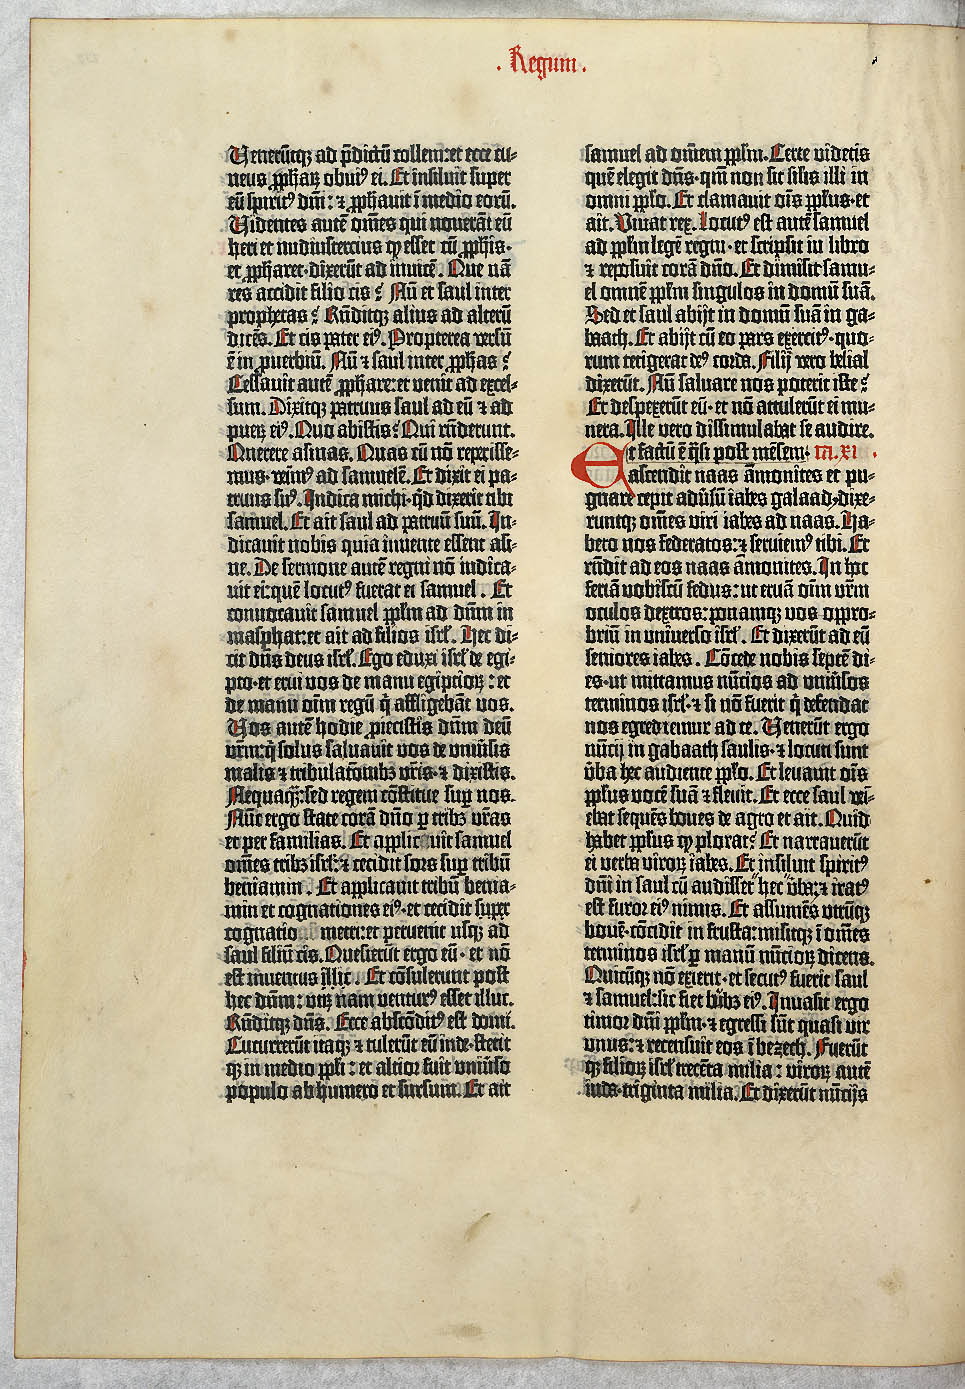 . Regum .
Venerūtqꝫ ad p̄dictū collem: et ecce cu-
neus ꝓphaꝝ obuiꝰ ei. Et insiluit super
eū spiritꝰ dn̄i: ⁊ ꝓphauit ī medio eorū.
Videntes autē om̄es qui nouerāt eū
heri et nudiustercius ꝙ esset cū ꝓphis·
et ꝓpharet· dixerūt ad inuicē. Que nā
res accidit filio cis? Nū et saul inter
prophetas? Rn̄ditqꝫ alius ad alterū
dicēs. Et cis pater eiꝰ. Propterea versū
ē in ꝓuerbiū. Nū ⁊ saul inter ꝓphas?
Cessauit autē ꝓphare: et venit ad excel-
sum. Dixitqꝫ patruus saul ad eū ⁊ ad
pueꝝ eiꝰ. Quo abistis? Qui rn̄derunt.
Querere asinas. Quas cū nō reperisse-
mus· venimꝰ ad samuelē. Et dixit ei pa-
truus suꝰ. Indica michi· qd̄ dixerit tibi
samuel. Et ait saul ad patruū suū. In-
dicauit nobis quia inuente essent asi-
ne. De sermone autē regni nō indica-
uit ei: quē locutꝰ fuerat ei samuel. Et
conuocauit samuel pplm ad dn̄m in
masphat: et ait ad filios isrl̄. Hec di-
cit dn̄s deus isrl̄. Ego eduxi isrl̄ de egi-
pto· et erui vos de manu egiptioꝝ: et
de manu oīm regū q̄ affligebāt vos.
Vos autē hodie ꝓiecistis dn̄m deū
vr̄m: q̄ solus saluauit vos de vniūsis
malis ⁊ tribulatōnibꝫ vr̄is· ⁊ dixistis.
Nequaqꝫ: sed regem cōstitue sup̄ nos.
Nūc ergo state corā dn̄o ꝑ tribꝫ vr̄as
et per familias. Et applicuit samuel
om̄es tribꝫ isrl̄: ⁊ cecidit sors sup̄ tribū
beniamin. Et applicauit tribū benia-
min et cognationes eiꝰ· et cecidit super
cognatio metri: et peruenit usqꝫ ad
saul filiū cis. Quesierūt ergo eū· et nō
est inuentus illic. Et cōsulerunt post
hec dn̄m: vtꝝ nam venturꝰ esset illuc.
Rn̄ditqꝫ dn̄s. Ecce abscōditꝰ est domi.
Cucurrerūt itaqꝫ ⁊ tulerūt eū inde· stetit
qꝫ in medio ppl̄i: et altior fuit vniūso
populo ab humero et sursum. Et ait
samuel ad om̄em pplm. Certe videtis
quē elegit dn̄s· qm̄ non sit silis illi in
omni pplo. Et clamauit oīs pplus· et
ait. Viuat rex. Locutꝰ est autē samuel
ad pplm legē regni· et scripsit in libro
⁊ reposuit corā dn̄o. Et dimisit samu-
el omnē pplm singulos in domū suā.
Sed et saul abijt in domū suā in ga-
baath. Et abijt cū eo pars exercitꝰ· quo-
rum tetigerat deꝰ corda. Filij vero belial
dixerūt. Nū saluare nos poterit iste?
Et despexerūt eū· et nō attulerūt ei mu-
nera. Ille vero dissimulabat se audire.
Et factū ē q̄si post mēsem· ca. xi.
ascendit naas āmonites et pu-
gnare cepit adūsū iabes galaad· dixe-
runtqꝫ om̄es viri iabes ad naas. Ha-
beto nos federatos: ⁊ seruiemꝰ tibi. Et
rn̄dit ad eos naas āmonites. In hoc
feriā vobiscū fedus: ut eruā oīm vr̄m
oculos dextros: ponamqꝫ vos oppro-
briū in vniuerso isrl̄. Et dixerūt ad eū
seniores iabes. Cōcede nobis septē di-
es· ut mittamus nūcios ad vniūsos
terminos isrl̄· ⁊ si nō fuerit q̄ defendat
nos egrediemur ad te. Venerūt ergo
nūcij in gabaath saulis· ⁊ locuti sunt
v̄ba hec audiente pplo. Et leuauit oīs
pplus vocē suā ⁊ fleuit. Et ecce saul veī-
ebat sequēs boues de agro et ait. Quid
habet pplus ꝙ plorat? Et narrauerūt
ei verba viroꝝ iabes. Et insiluit spiritꝰ
dn̄i in saul cū audisset hec v̄ba: ⁊ iratꝰ
est furor eiꝰ nimis. Et assumēs vtrūqꝫ
bouē· cōcidit in frusta: misitqꝫ ī om̄es
terminos isrl̄ ꝑ manū nūcioꝝ dicens.
Quicūqꝫ nō exierit· et secutꝰ fuerit saul
⁊ samuel: sic fiet bubꝫ eiꝰ. Inuasit ergo
timor dn̄i pplm· ⁊ egressi sūt quasi vir
vnus: ⁊ recensuit eos ī bezech. Fuerūt
qꝫ filioꝝ isrl̄ trecēta milia: viroꝝ autē
iuda· triginta milia. Et dixerūt nūcijs